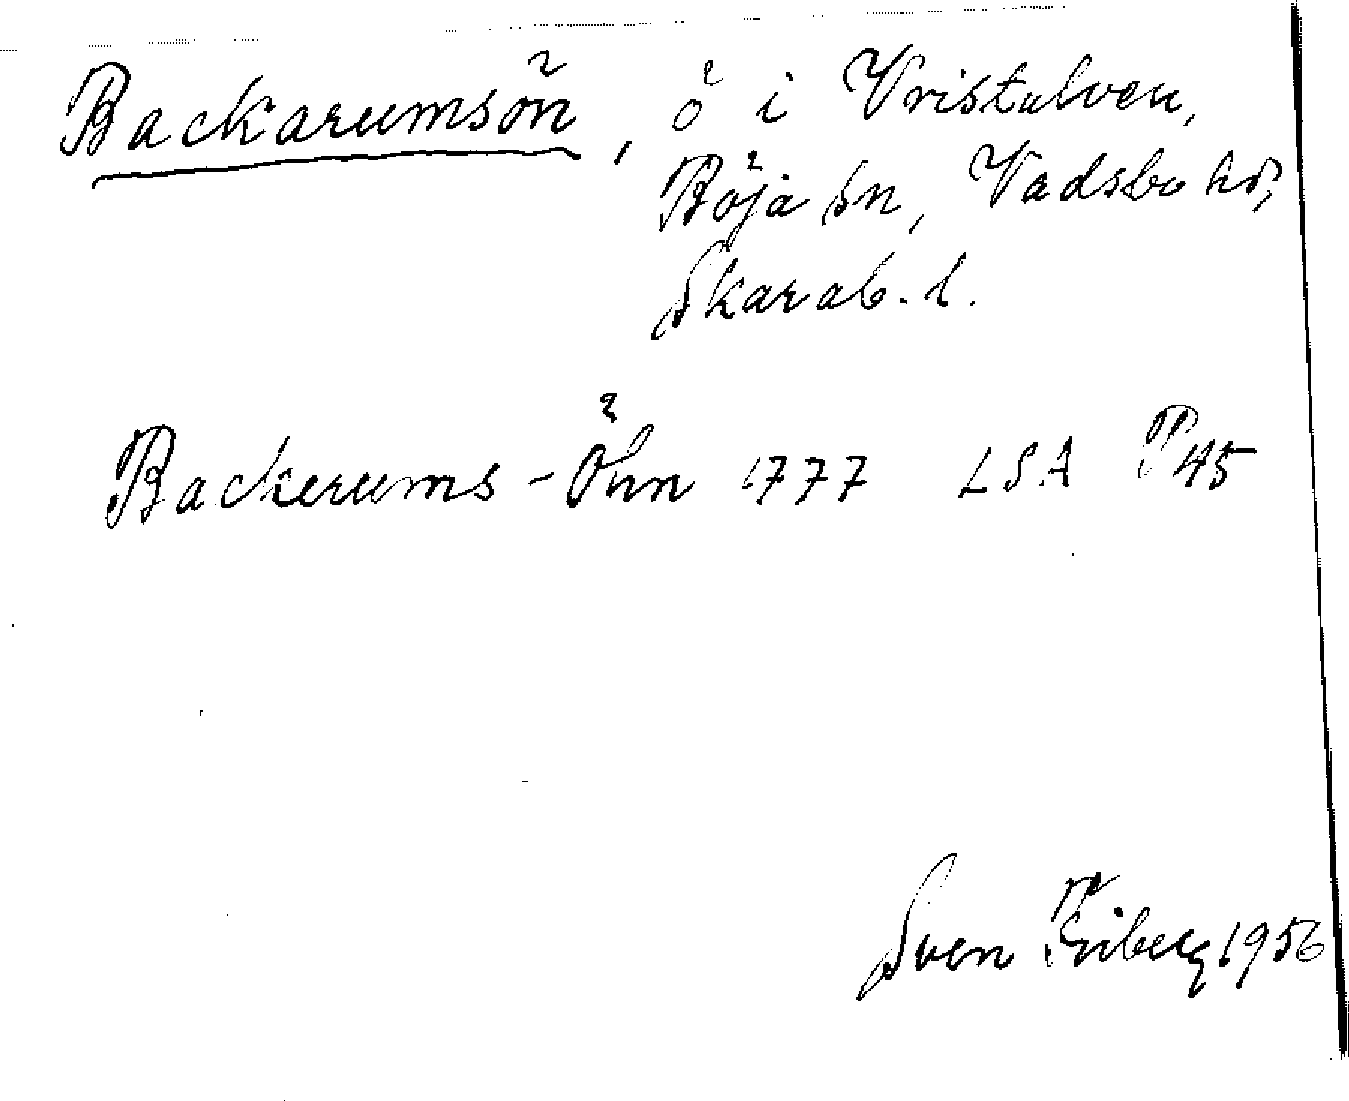 Backarumsön, ö i Vristulven,
Böja sn, Vadsbo hd,
Skarab. l.
Backerums-Öhn 1777 LSA P45
Sven Friberg 1956